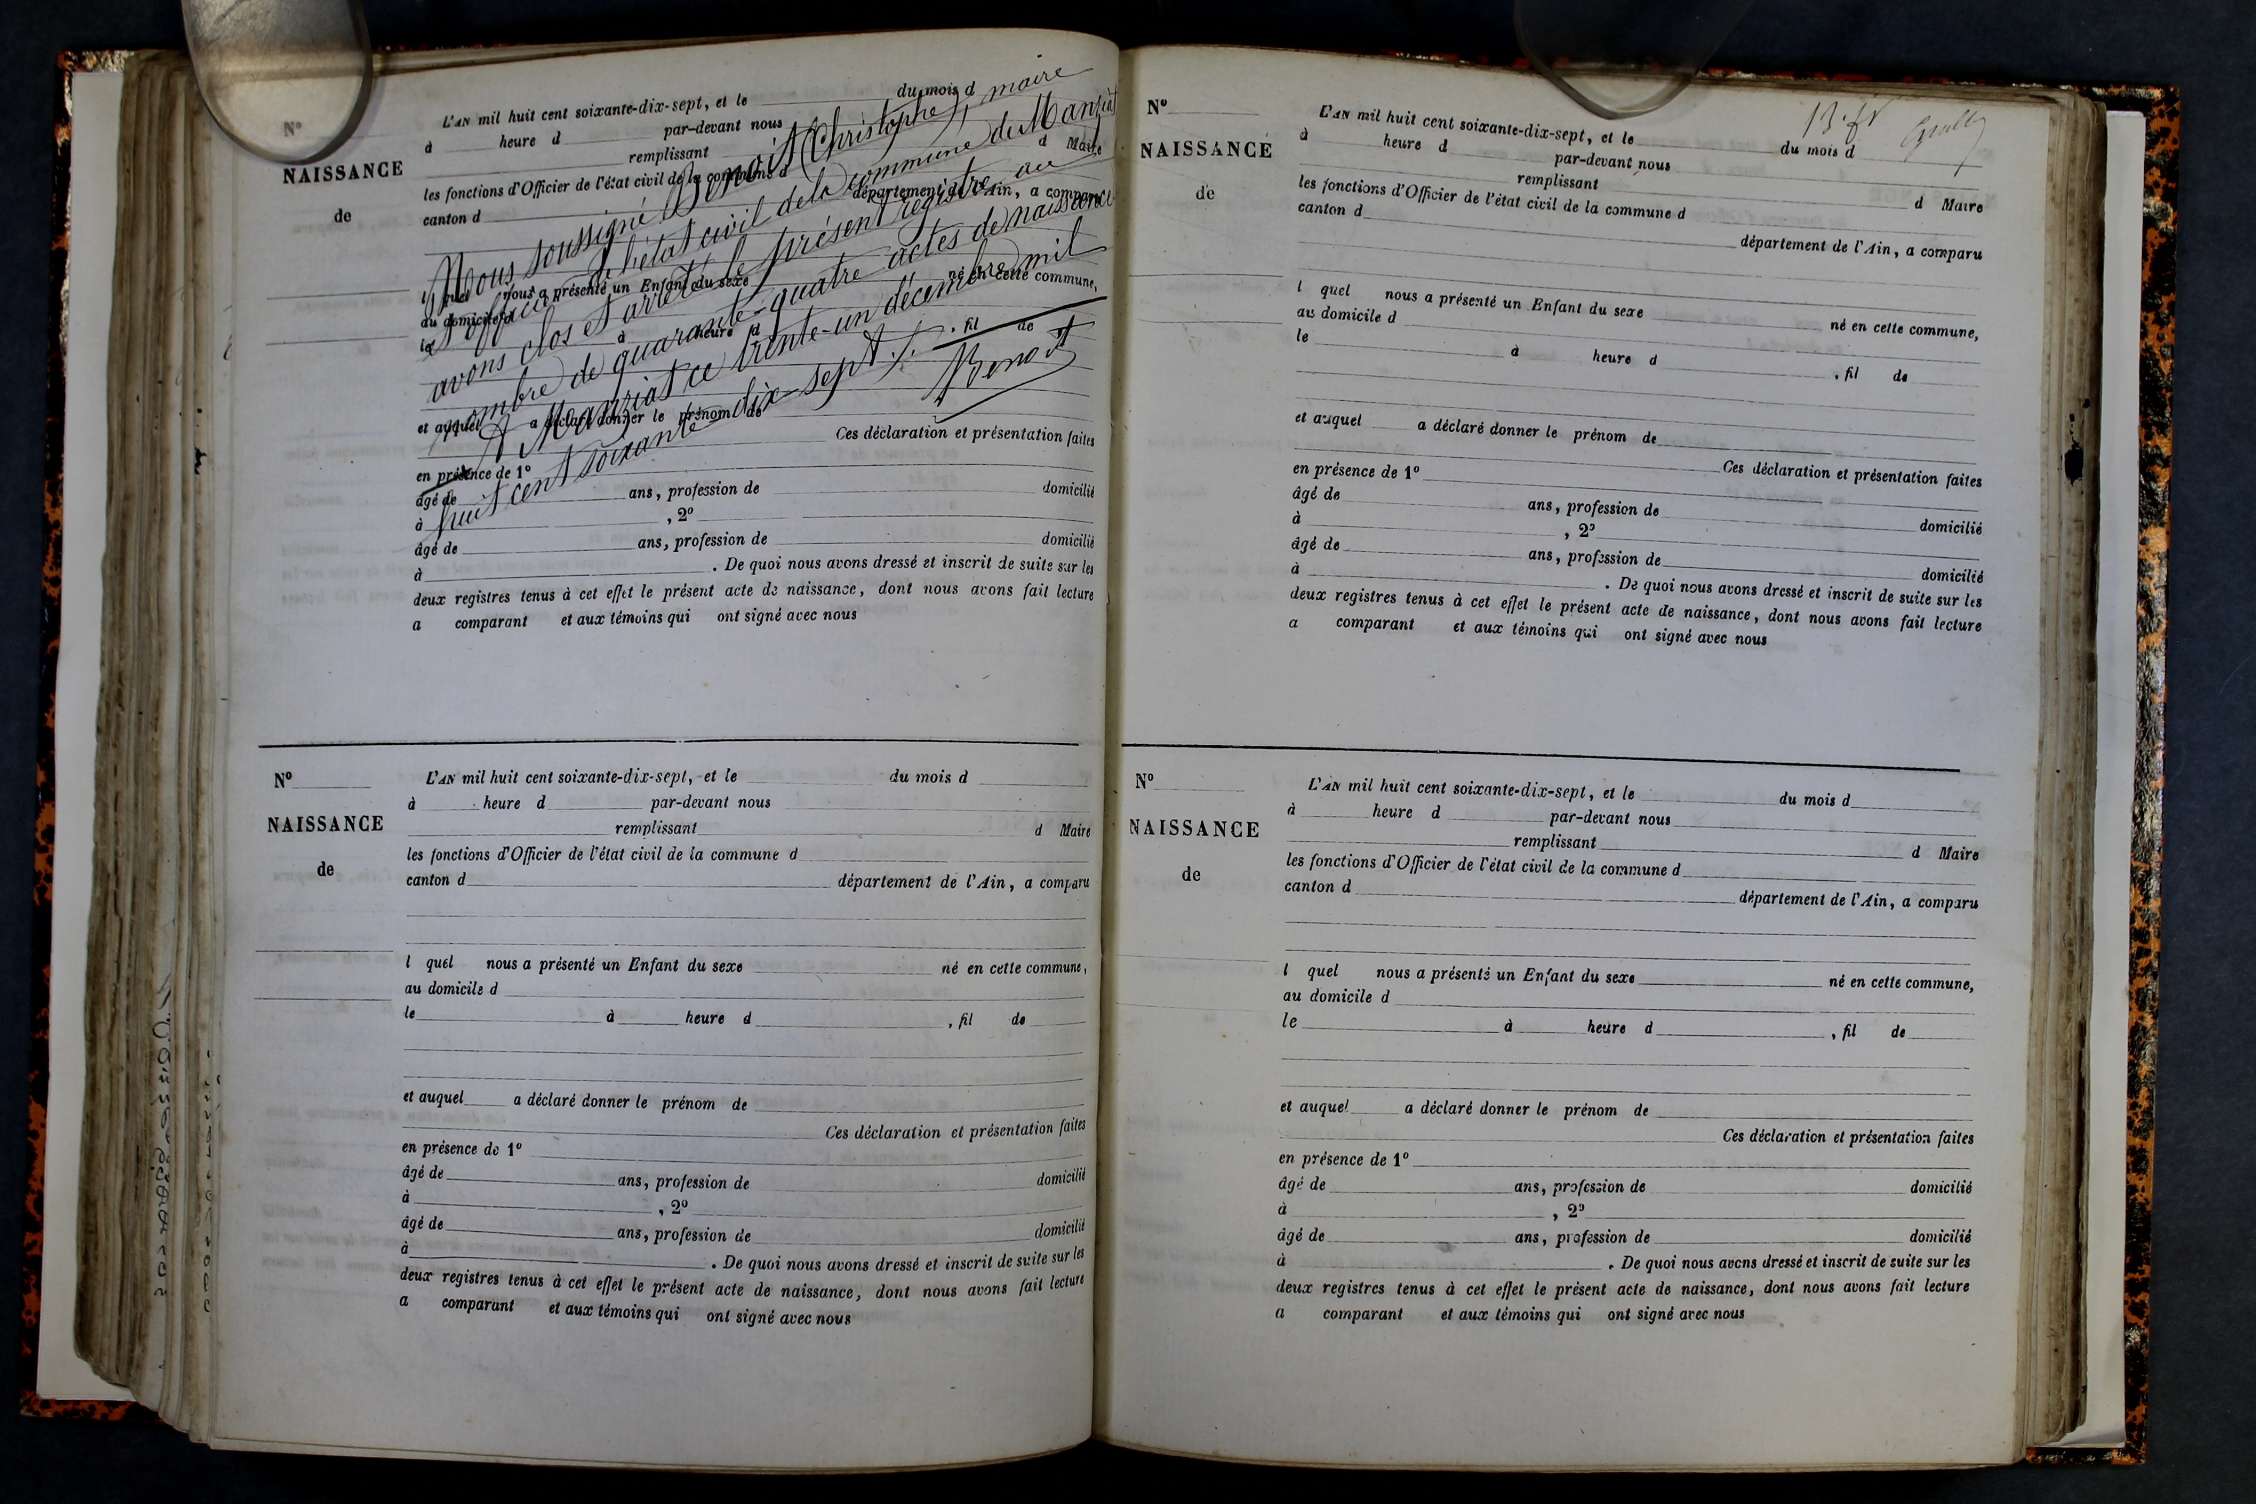 N°
NAISSANCE
de
L'AN mil huit cent soixante-dix-sept, et le du mois d
à heure d par-devant nous
remplissant d Maire
les fonctions d'Officier de l'état civil de la commune d
canton d département de l'Ain, a comparu
l quel nous a présenté un Enfant du sexe né en cette commune,
au domicile d
le à heure d , fil de
et auquel a déclaré donner le prénom de
Ces déclaration et présentation faites
en présence de 1°
âgé de ans, profession de domicilié
à , 2°
âgé de ans, profession de domicilié
à . De quoi nous avons dressé et inscrit de suite sur les
deux registres tenus à cet effet le présent acte de naissance, dont nous avons fait lecture
a comparant et aux témoins qui ont signé avec nous
Nous soussigné Benoit Christophe, maire
officier de l'état civil de la commune de Manziat
avons clos et arrêté le présent registre au
nombre de quarante-quatre actes de naissance
A Manziat ce trente-un décembre mil
huit cent soixante dix-sept ./.
Benoit
N°
NAISSANCE
de
L'AN mil huit cent soixante-dix-sept, et le du mois d
à heure d par-devant nous
remplissant d Maire
les fonctions d'Officier de l'état civil de la commune d
canton d département de l'Ain, a comparu
l quel nous a présenté un Enfant du sexe né en cette commune,
au domicile d
le à heure d , fil de
et auquel a déclaré donner le prénom de
Ces déclaration et présentation faites
en présence de 1°
âgé de ans, profession de domicilié
à , 2°
âgé de ans, profession de domicilié
à . De quoi nous avons dressé et inscrit de suite sur les
deux registres tenus à cet effet le présent acte de naissance, dont nous avons fait lecture
a comparant et aux témoins qui ont signé avec nous
N°
NAISSANCE
de
L'AN mil huit cent soixante-dix-sept, et le du mois d
à heure d par-devant nous
remplissant d Maire
les fonctions d'Officier de l'état civil de la commune d
canton d département de l'Ain, a comparu
l quel nous a présenté un Enfant du sexe né en cette commune,
au domicile d
le à heure d , fil de
et auquel a déclaré donner le prénom de
Ces déclaration et présentation faites
en présence de 1°
âgé de ans, profession de domicilié
à , 2°
âgé de ans, profession de domicilié
à . De quoi nous avons dressé et inscrit de suite sur les
deux registres tenus à cet effet le présent acte de naissance, dont nous avons fait lecture
a comparant et aux témoins qui ont signé avec nous
N°
NAISSANCE
de
L'AN mil huit cent soixante-dix-sept, et le du mois d
à heure d par-devant nous
remplissant d Maire
les fonctions d'Officier de l'état civil de la commune d
canton d département de l'Ain, a comparu
l quel nous a présenté un Enfant du sexe né en cette commune,
au domicile d
le à heure d , fil de
et auquel a déclaré donner le prénom de
Ces déclaration et présentation faites
en présence de 1°
âgé de ans, profession de domicilié
à , 2°
âgé de ans, profession de domicilié
à . De quoi nous avons dressé et inscrit de suite sur les
deux registres tenus à cet effet le présent acte de naissance, dont nous avons fait lecture
a comparant et aux témoins qui ont signé avec nous